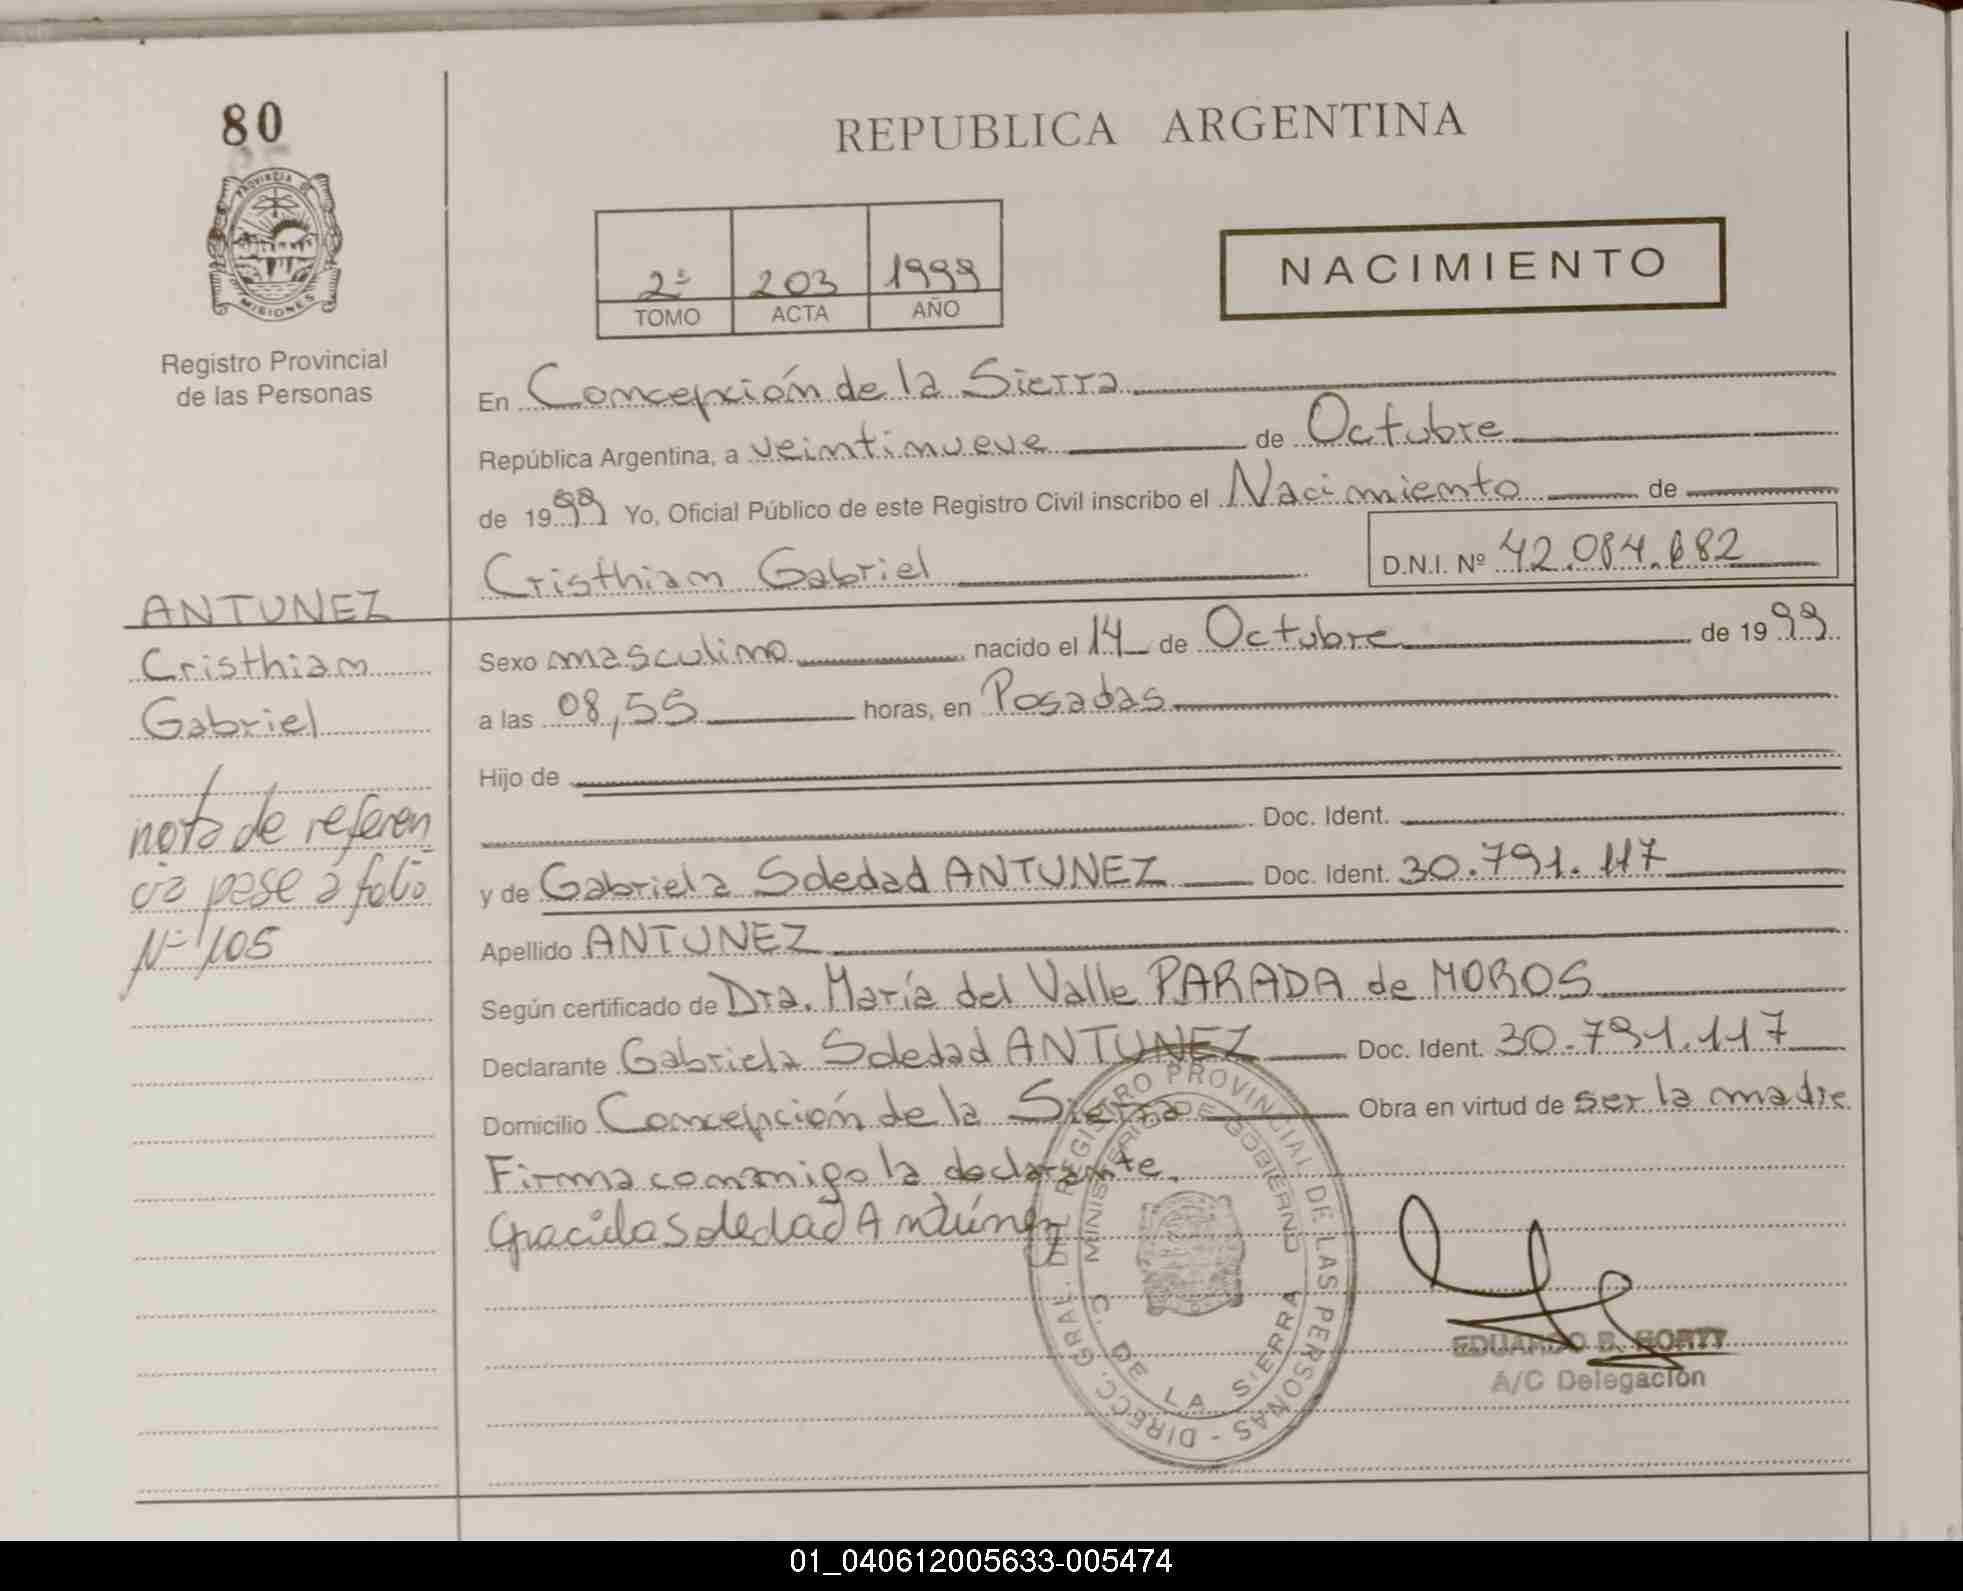 80
PROVINCIA DE
MISIONES
Registro Provincial
de las Personas
REPUBLICA ARGENTINA
2º 203 1999
TOMO ACTA AÑO
NACIMIENTO
En Concepción de la Sierra
República Argentina, a veintinueve de Octubre
de 1999 Yo, Oficial Público de este Registro Civil inscribo el Nacimiento de
Cristhiam Gabriel D.N.I. Nº 42.084.682
ANTUNEZ
Cristhiam
Gabriel
nota de referen
cia pase a folio
Nº 105
Sexo masculino nacido el 14 de Octubre de 1999
a las 08,55 horas, en Posadas
Hijo de
Doc. Ident.
y de Gabriela Soledad ANTUNEZ Doc. Ident. 30.791.117
Apellido ANTUNEZ
Según certificado de Dra. María del Valle PARADA de MOROS
Declarante Gabriela Soledad ANTUNEZ Doc. Ident. 30.791.117
Domicilio Concepción de la Sierra Obra en virtud de ser la madre
Firma conmigo la declarante.
Soledad Antúnez
DIRECC. GRAL. DEL REGISTRO PROVINCIAL DE LAS PERSONAS -
MINISTERIO DE GOBIERNO
C. DE LA SIERRA
EDUARDO B.
A/C Delegación
01_040612005633-005474